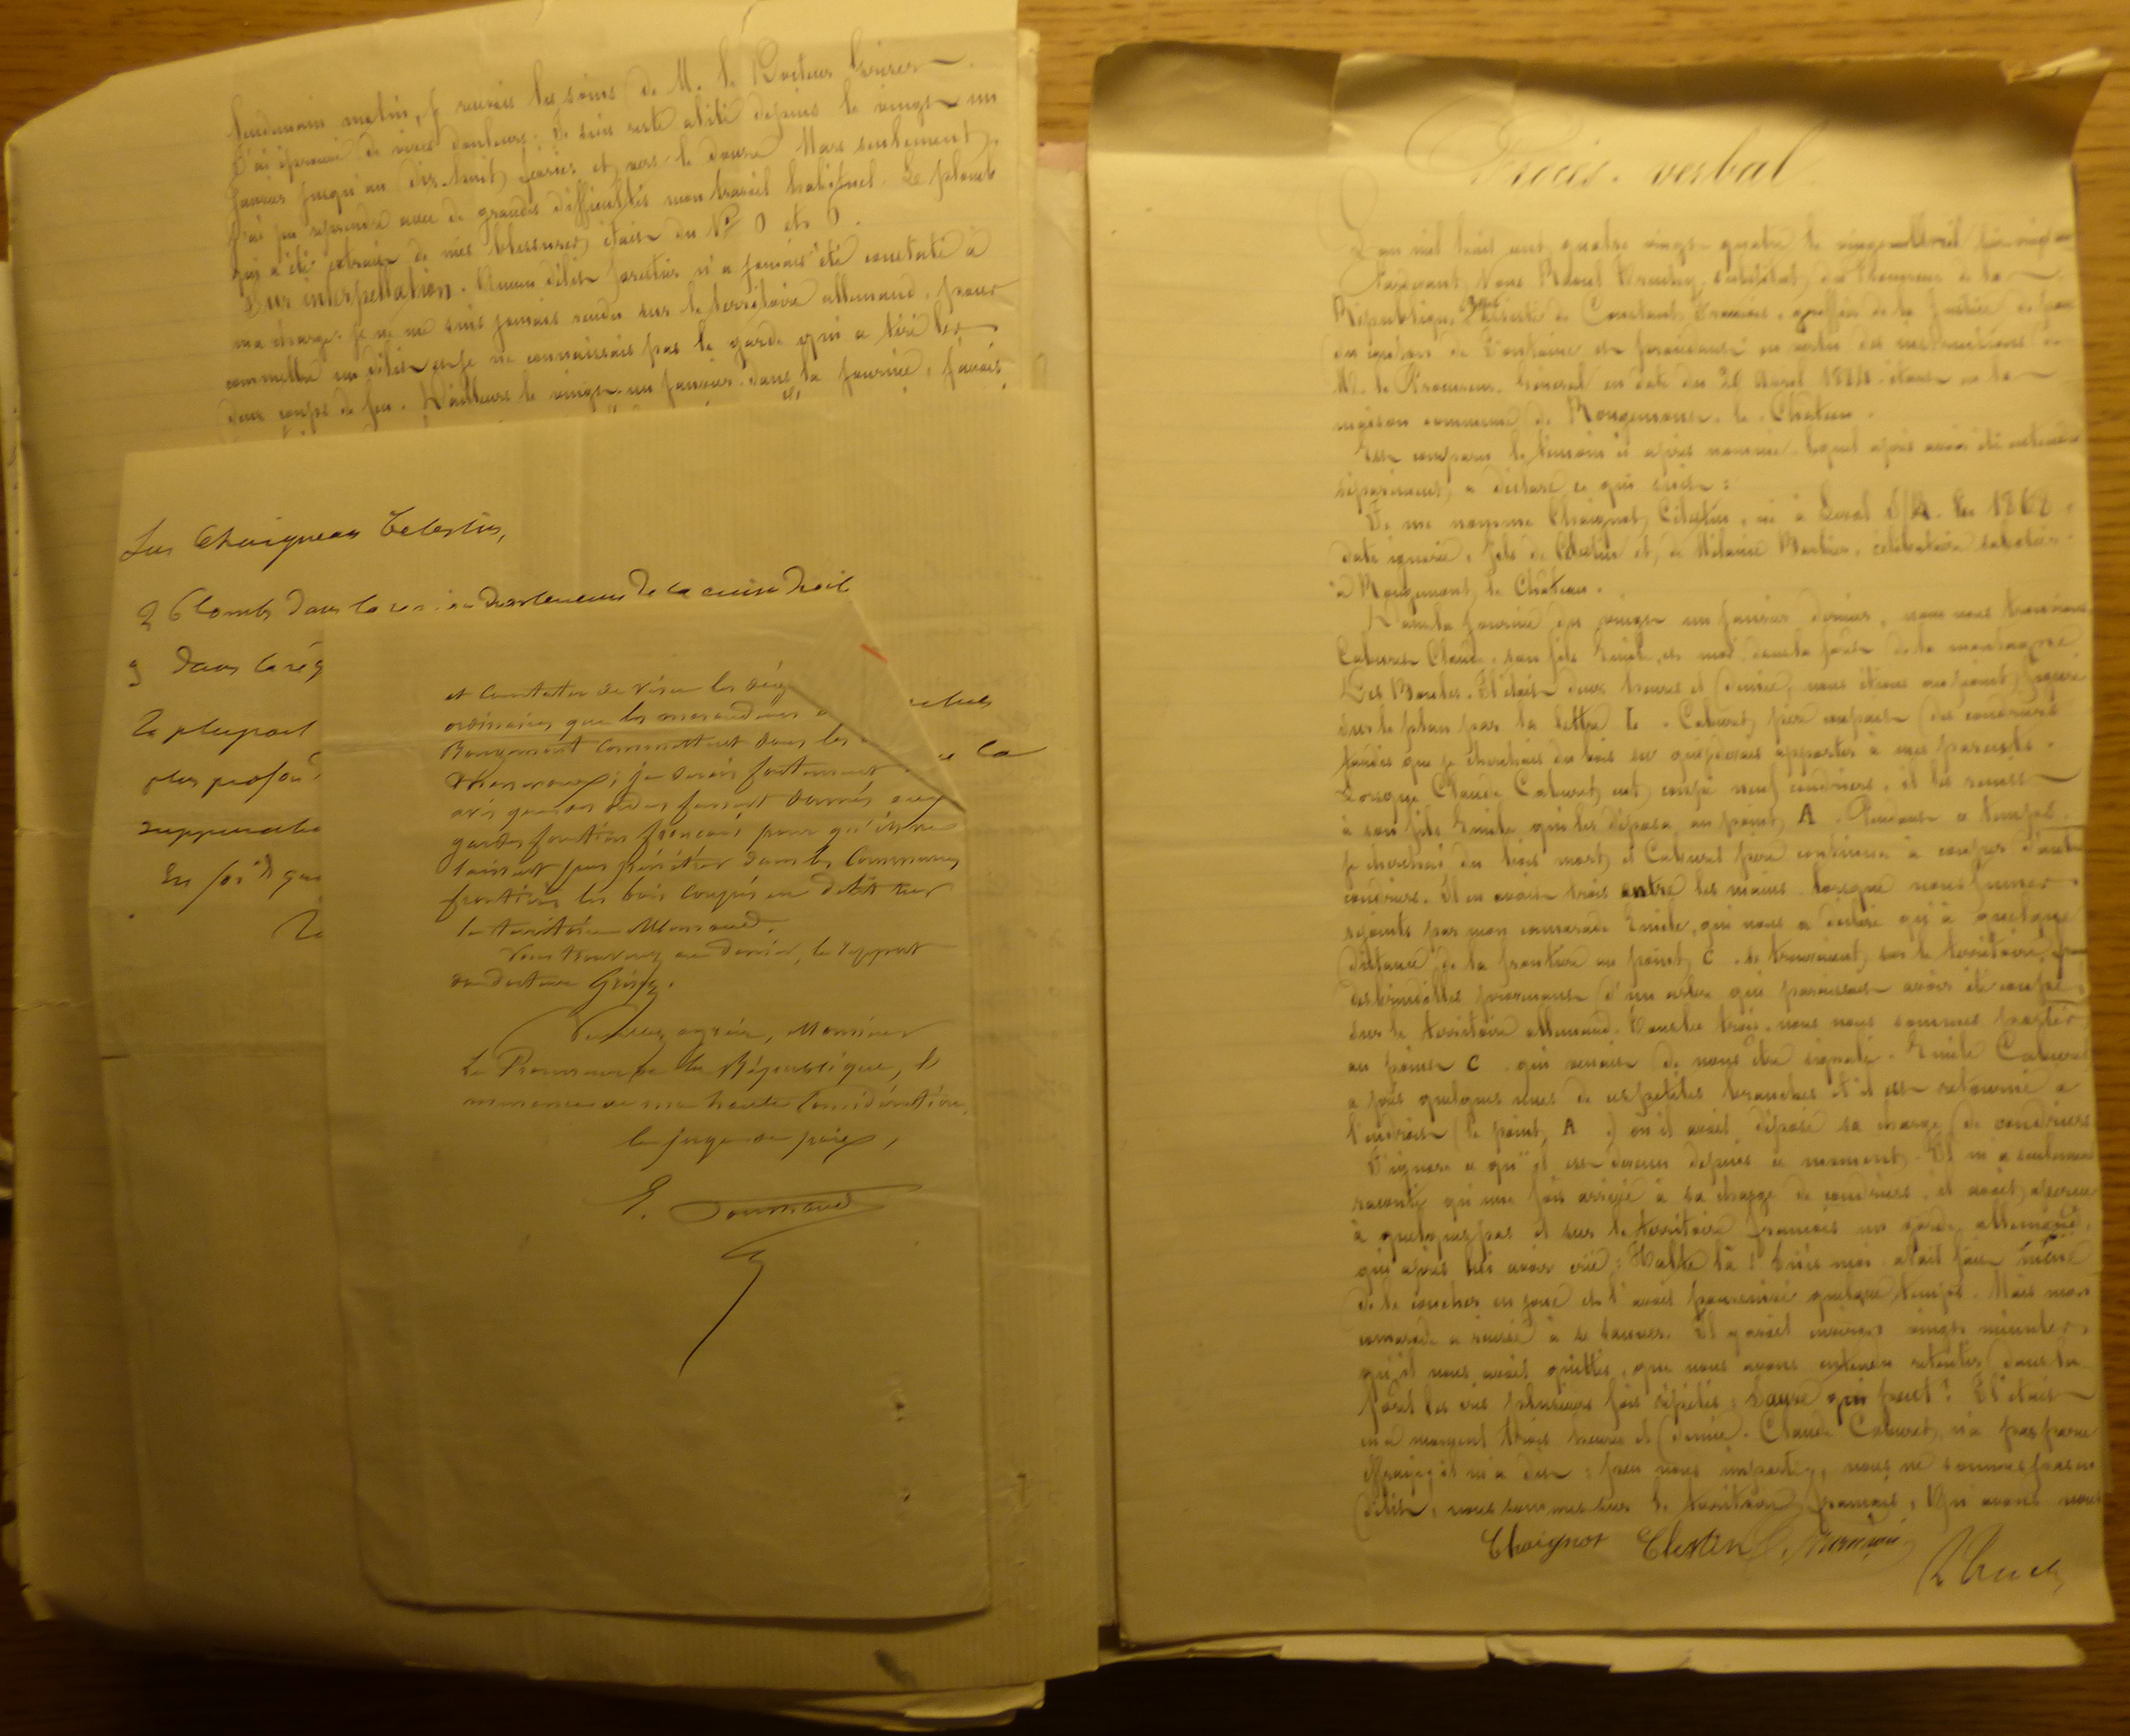 lendemain matin, je reçus les soins de M. le Docteur
J'ai éprouvé de vives douleurs. Je suis resté alité depuis le vingt un
Janvier jusqu'au dix-huit février et vers le douze Mars seulement,
j'ai pu reprendre avec de grandes difficultés mon travail habituel. Le plomb
qui a été extrait de mes blessures était du N° 0 et
Sur interpellation. Aucun délit forestier n'a jamais été constaté à
ma charge. Je ne me suis jamais rendu sur le territoire allemand, pour
commettre un délit et je ne connaissais pas le garde qui a tiré les
deux coups de feu. D'ailleurs le vingt-un janvier dans la journée, j'avais
Sur Chaigneau Celestin,
2 Plombs dans la de la cuisse droite
3 dans la rég
La plupart
plus profon
suppuratio
En foi de quoi
et constater de visu les dég
ordinaires que les maraudeurs
Rougemont commettent dans les
je serais fortement
avis que des ordres fussent donnés aux
gardes forestiers français pour qu'ils ne
laissent pas pénétrer dans les communes
frontières les bois coupés en délit sur
le territoire Allemand.
Vous trouverez au dossier, le rapport
du docteur
Veuillez agréer, Monsieur
Le Procureur de la République, l'
assurance de ma haute considération,
le juge de paix,
Procès-verbal
L'an mil huit cent quatre vingt quatre le vingt Avril
Pardevant Nous substitut du Procureur de la
République, assisté de Constant François, greffier de la Justice de paix
du canton de Fontaine et procédant en vertu des instructions de
M. le Procureur Général en date du 20 Avril 1884, étant à la
maison commune de Rougemont-le-Château.
Est comparu le témoin ci après nommé lequel après avoir été entendu
séparément, a déclaré ce qui suit :
Je me nomme Chaignot, Célestin, né à en 1868,
date ignorée, fils de Célestin et de Mélanie Barbier, célibataire
à Rougemont le Château.
Dans la journée du vingt un janvier dernier, nous nous trouvions
Caburet Claude, son fils Emile, et moi dans la forêt de la montagne
Il était deux heures et demie, nous étions au point, figuré
sur le plan par la lettre I. Caburet père coupait des coudriers
tandis que je cherchais du bois sec que je devais apporter à mes parents.
Lorsque Claude Caburet eut coupé neuf coudriers, il les remit
à son fils Emile qui les déposa au point A. Pendant ce temps
je cherchais du bois mort et Caburet père continua à couper d'autres
coudriers. Il en avait trois entre les mains lorsque nous fûmes
rejoints par mon camarade Emile, qui nous a déclaré qu'à quelque
distance de la frontière au point C se trouvaient, sur le territoire
des brindilles provenant d'un arbre qui paraissait avoir été coupé
sur le territoire allemand. Tous les trois nous nous sommes portés
au point C qui venait de nous être signalé. Emile Caburet
a pris quelques unes de ces petites branches et il est retourné à
l'endroit (le point A) où il avait déposé sa charge de coudriers
J'ignore ce qu'il est devenu depuis ce moment. Il m'a seulement
raconté qu'une fois arrivé à sa charge de coudriers, il avait aperçu
à quelques pas et sur le territoire français un garde allemand,
qui après lui avoir crié : Halte là ! suis moi avait fait mine
de le coucher en joue et l'avait poursuivi quelque temps. Mais mon
camarade a réussi à se sauver. Il y avait environ vingt minutes
qu'il nous avait quittés, que nous avons entendu retentir dans la
forêt les cris plusieurs fois répétés : Sauve qui peut ! Il était
en ce moment trois heures et demie. Claude Caburet, n'a pas paru
effrayé et m'a dit : peu nous importe, nous ne sommes pas en
délit, nous sommes sur le territoire français, qu'avons nous
Chaignot Célestin C. François